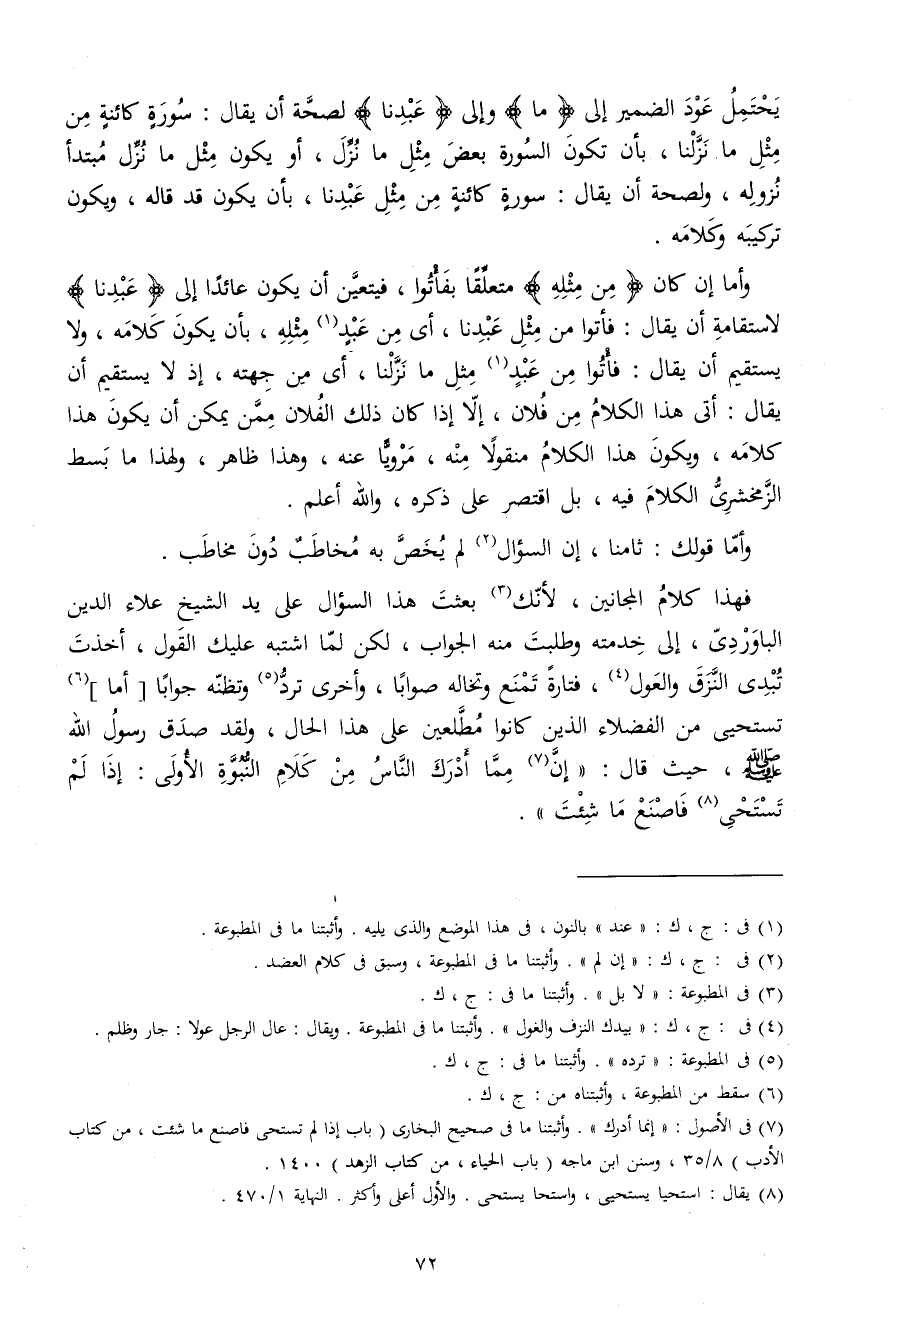 يَحْتَمِلُ عَوْدَ الضمير إلى ﴿ ما ﴾ وإلى ﴿ عَبْدِنا ﴾ لصحَّة أن يقال : سُورَةٍ كائنةٍ مِن
مِثْلِ ما نَزَّلْنا ، بأن تكونَ السُورة بعضَ مِثْلِ ما نُزِّلَ ، أو يكون مِثْل ما نُزِّل مُبتدأ
نُزولِه ، ولصحة أن يقال : سورةٍ كائنةٍ مِن مِثْلِ عَبْدِنا ، بأن يكون قد قاله ، ويكون
تركيبَه وكَلامَه .
وأما إن كان ﴿ مِن مِثْلِهِ ﴾ متعلِّقًا بفَأْتُوا ، فيتعيَّن أن يكون عائدًا إلى ﴿ عَبْدِنا ﴾
لاستقامةِ أن يقال : فأتوا من مِثْلِ عَبْدِنا ، أى مِن عَبْدٍ(١) مِثْلِهِ ، بأن يكونَ كَلامَه ، ولا
يستقيم أن يقال : فأْتُوا مِن عَبْدٍ(١) مِثلِ ما نَزَّلْنا ، أى مِن جِهته ، إذ لا يستقيم أن
يقال : أتى هذا الكلامُ مِن فُلان ، إلّا إذا كان ذلك الفُلان مِمَّن يمكن أن يكونَ هذا
كلامَه ، ويكونَ هذا الكلامُ منقولًا مِنْه ، مَرْويًّا عنه ، وهذا ظاهر ، ولهذا ما بَسط
الزَّمخشرىُّ الكلامَ فيه ، بل اقتصر على ذكره ، والله أعلم .
وأمّا قولك : ثامنا ، إن السؤال(٢) لم يُخَصَّ به مُخاطَبٌ دُونَ مخاطَب .
فهذا كلامُ المجانين ، لأنّك(٣) بعثتَ هذا السؤال على يد الشيخ علاء الدين
الباوَرْدِىّ ، إلى خِدمته وطلبتَ منه الجواب ، لكن لمّا اشتبه عليك القَول ، أخذتَ
تُبْدِى النَّزَقَ والعَول(٤) ، فتارةً تَمْنَع وتخاله صوابًا ، وأخرى تردُّ(٥) وتظنّه جوابًا [ أما ](٦)
تستحيى من الفضلاء الذين كانوا مُطَّلعين على هذا الحال ، ولقد صدَق رسولُ الله
ﷺ ، حيث قال : « إنَّ(٧) مِمَّا أَدْرَكَ النَّاسُ مِنْ كَلَامِ النُّبُوَّةِ الأُولَى : إذَا لَمْ
تَسْتَحْىِ(٨) فَاصْنَعْ مَا شِئْتَ » .
(١) فى : ج ، ك : « عند » بالنون ، فى هذا الموضع والذى يليه . وأثبتنا ما فى المطبوعة .
(٢) فى : ج ، ك : « إن لم » . وأثبتنا ما فى المطبوعة ، وسبق فى كلام العضد .
(٣) فى المطبوعة : « لا بل » . وأثبتنا ما فى : ج ، ك .
(٤) فى : ج ، ك : « يبدك النزف والغول » . وأثبتنا ما فى المطبوعة . ويقال : عال الرجل عولا : جار وظلم .
(٥) فى المطبوعة : « ترده » . وأثبتنا ما فى : ج ، ك .
(٦) سقط من المطبوعة ، وأثبتناه من : ج ، ك .
(٧) فى الأصول : « إنما أدرك » . وأثبتنا ما فى صحيح البخارى ( باب إذا لم تستحى فاصنع ما شئت ، من كتاب
الأدب ) ٣٥/٨ ، وسنن ابن ماجه ( باب الحياء ، من كتاب الزهد ) ١٤٠٠ .
(٨) يقال : استحيا يستحيى ، واستحا يستحى . والأول أعلى وأكثر . النهاية ٤٧٠/١ .
٧٢